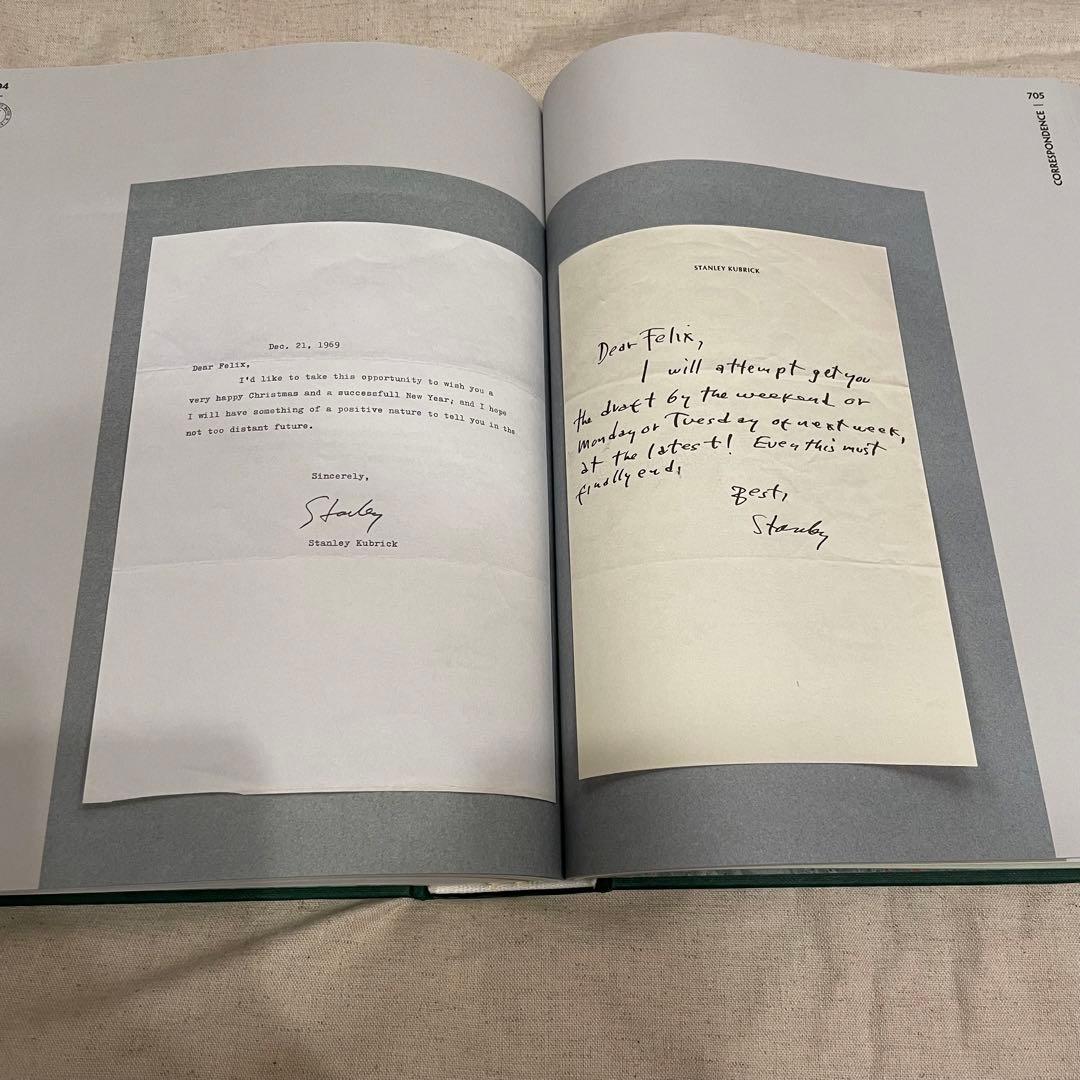 04
Dec. 21, 1969
Dear Felix,
I'd like to take this opportunity to wish you a
very happy Christmas and a successfull New Year; and I hope
I will have something of a positive nature to tell you in the
not too distant future.
Sincerely,
Stanley
Stanley Kubrick
705
CORRESPONDENCE |
STANLEY KUBRICK
Dear Felix,
I will attempt get you
the draft by the weekend or
Monday or Tuesday of next week,
at the latest! Even this must
finally end.
Best,
Stanley